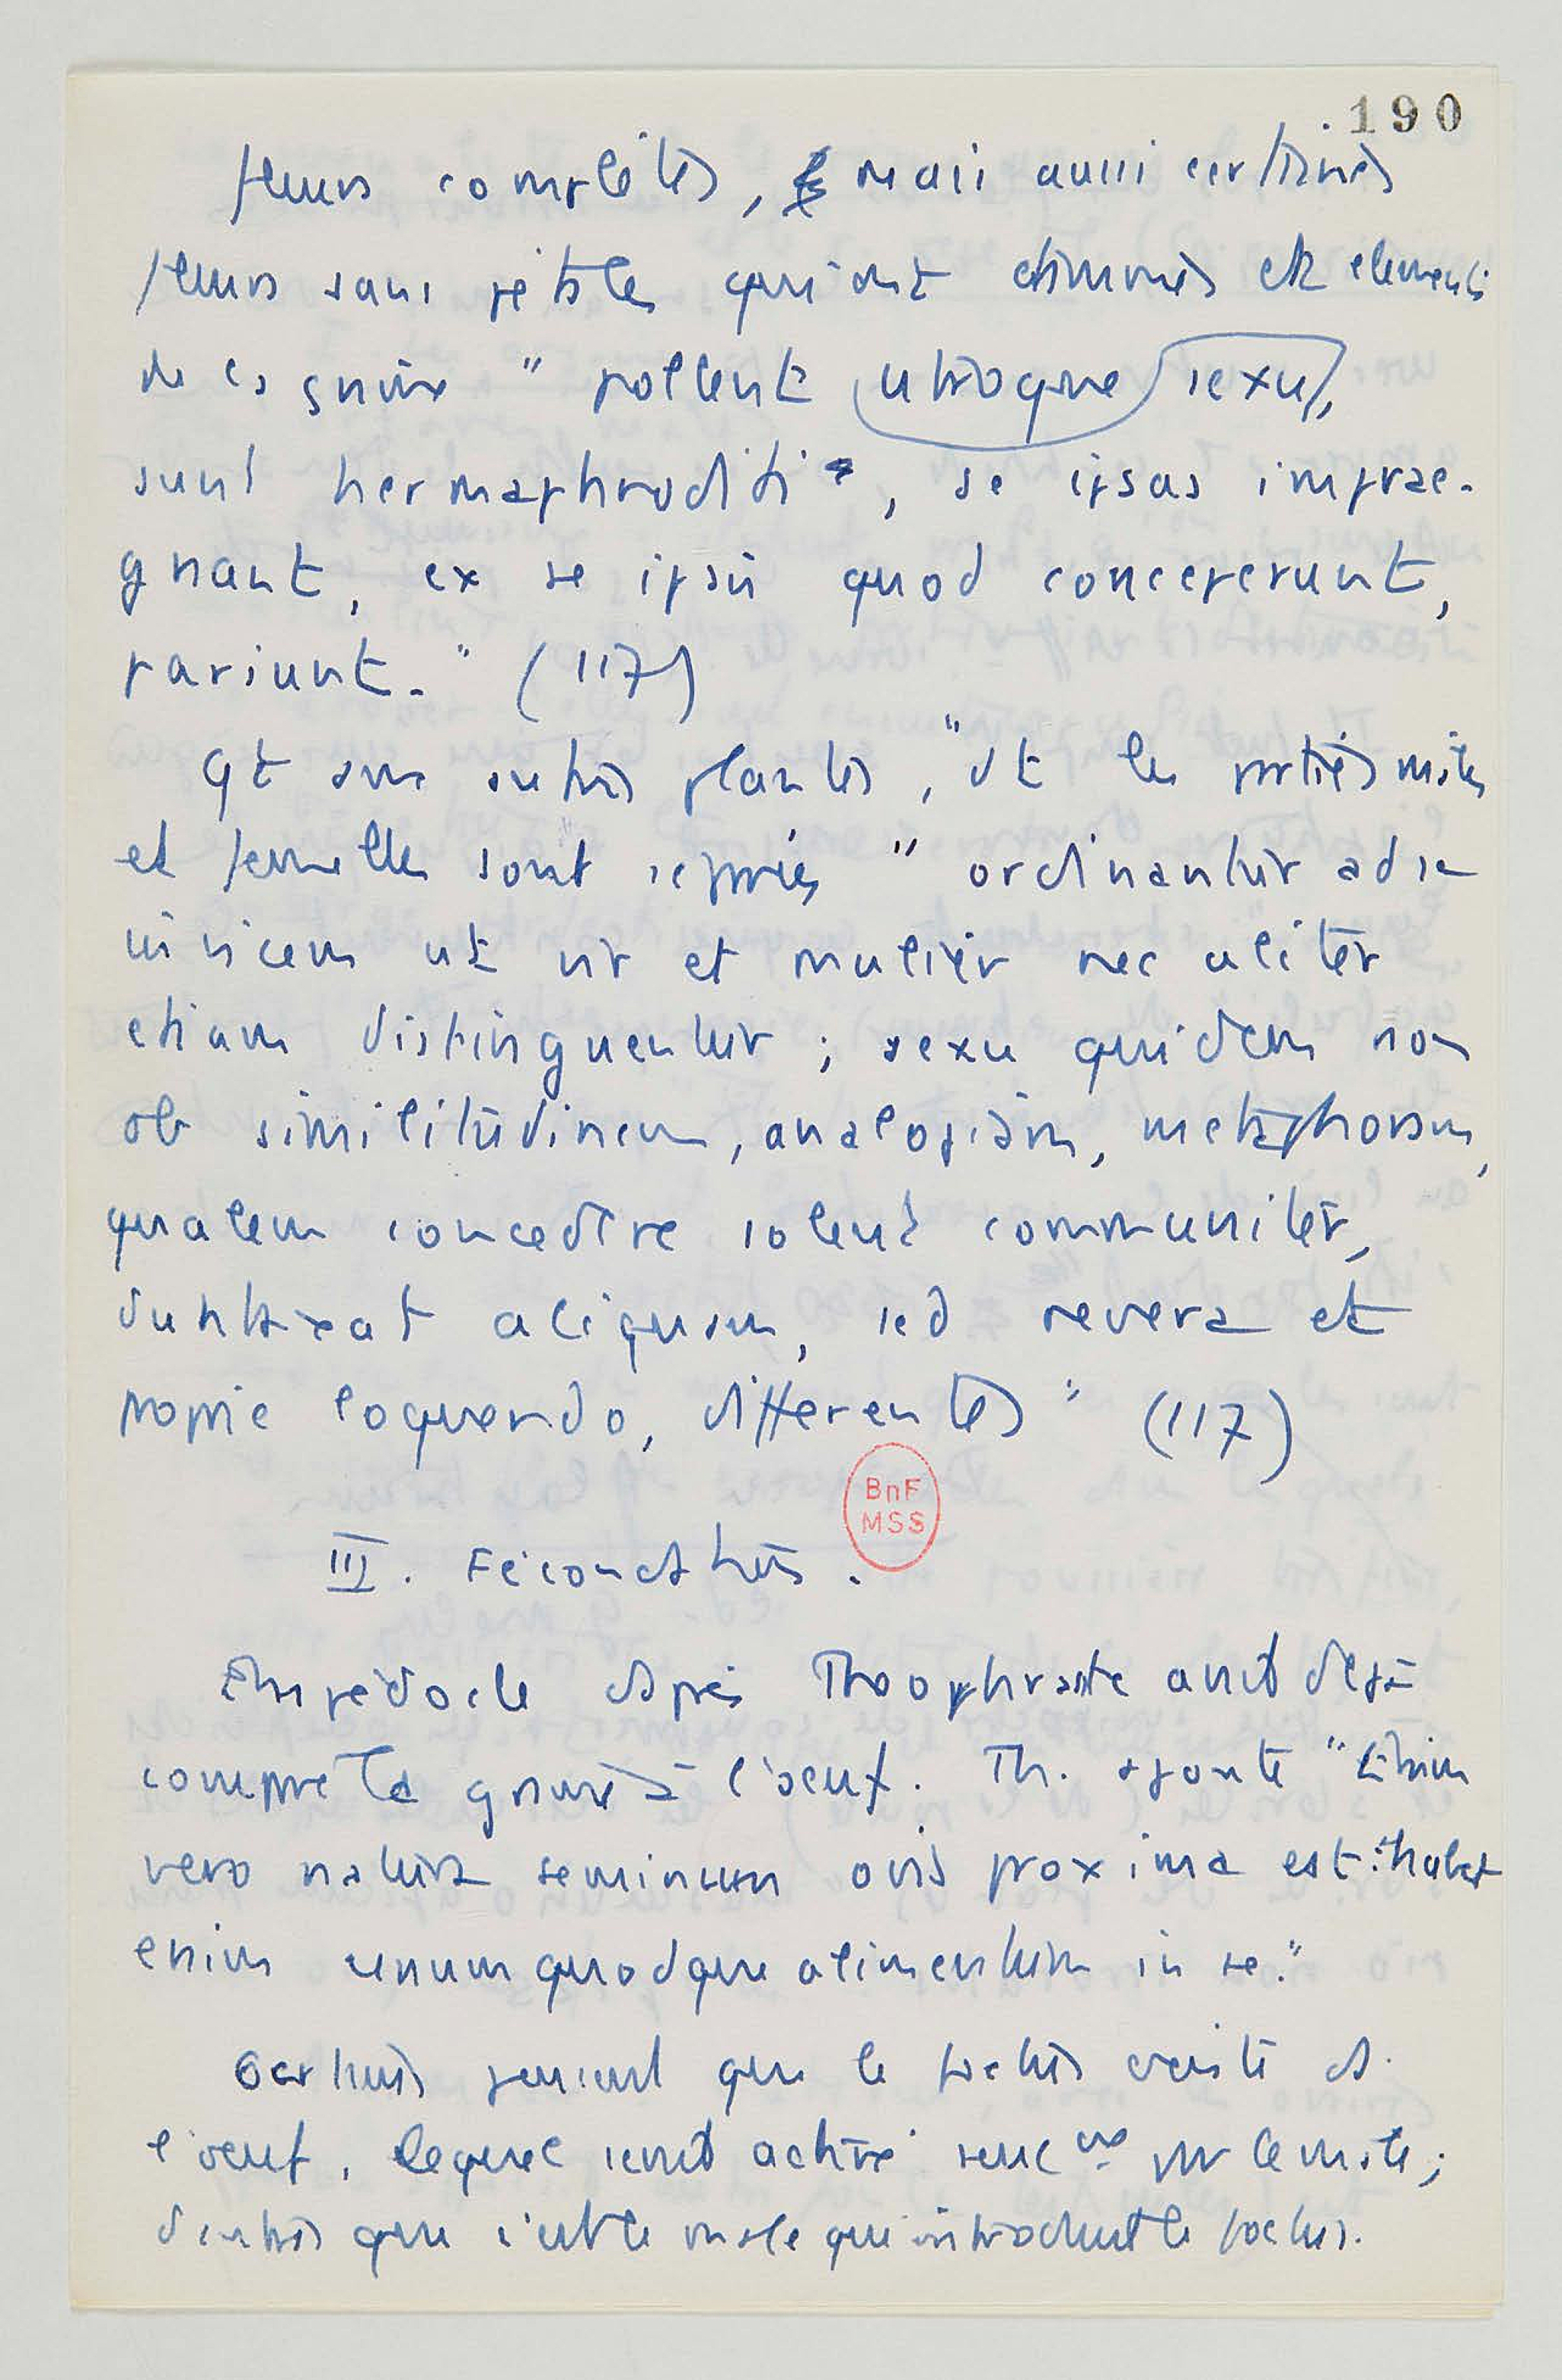 190
fleurs complètes, mais aussi certaines
fleurs sans pétales qui ont étamines et elements
de la graine " pollent utroque sexu,
sunt hermaphroditi, se ipsas imprae-
gnant, ex se ipsis quod conceperunt,
pariunt." (117)
Qt aux autres plantes, dt les parties mâles
et femelles sont séparées " ordinantur ad se
invicem ut vir et mulier nec aliter
etiam distinguentur ; sexu quidem non
ob similitudinem, analogiam, metaphoram,
qualem concedere solent communiter,
duntaxat aliquam, sed revera et
proprie loquendo, differentes " (117)
III. Fécondation.
BnF
MSS
Empédocle après Théophraste avait déjà
comparé la graine à l'oeuf. Th. ajoute "Etiam
vero natura seminum ovis proxima est : habet
enim unumquodque alimentum in se."
Certains pensent que le foetus existe ds
l'oeuf, lequel serait activé par le mâle ;
d'autres que c'est le male qui introduit le foetus.